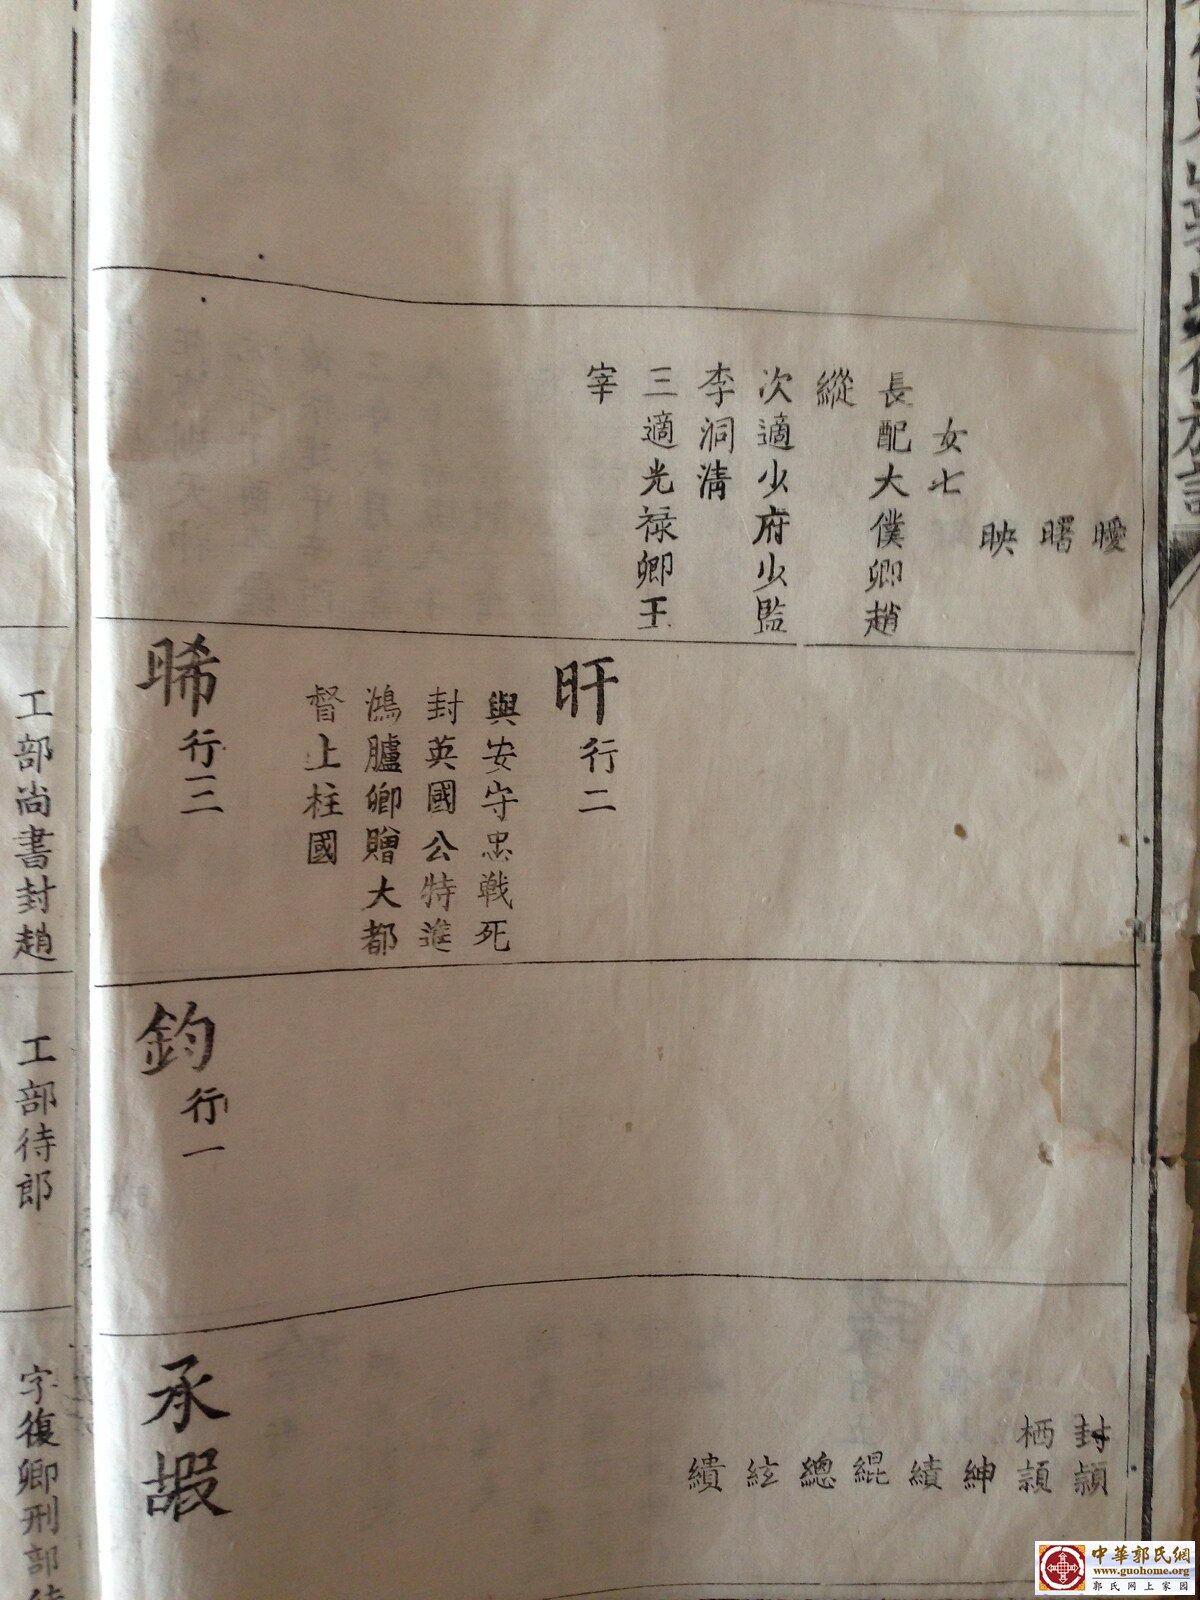 曖
曙
映
女七
長配大僕卿趙
縱
次適少府少監
李洞清
三適光禄卿王
宰
旰行二
與安守忠戦死
封英國公特進
鴻臚卿贈大都
督上柱國
晞行三
鈞行一
封頴
栖頴
紳
績
緄
總
紘
繢
承嘏
工部尚書封趙
工部待郎
字復卿刑部侍
中華郭氏網
www.guohome.org
郭氏网上家园